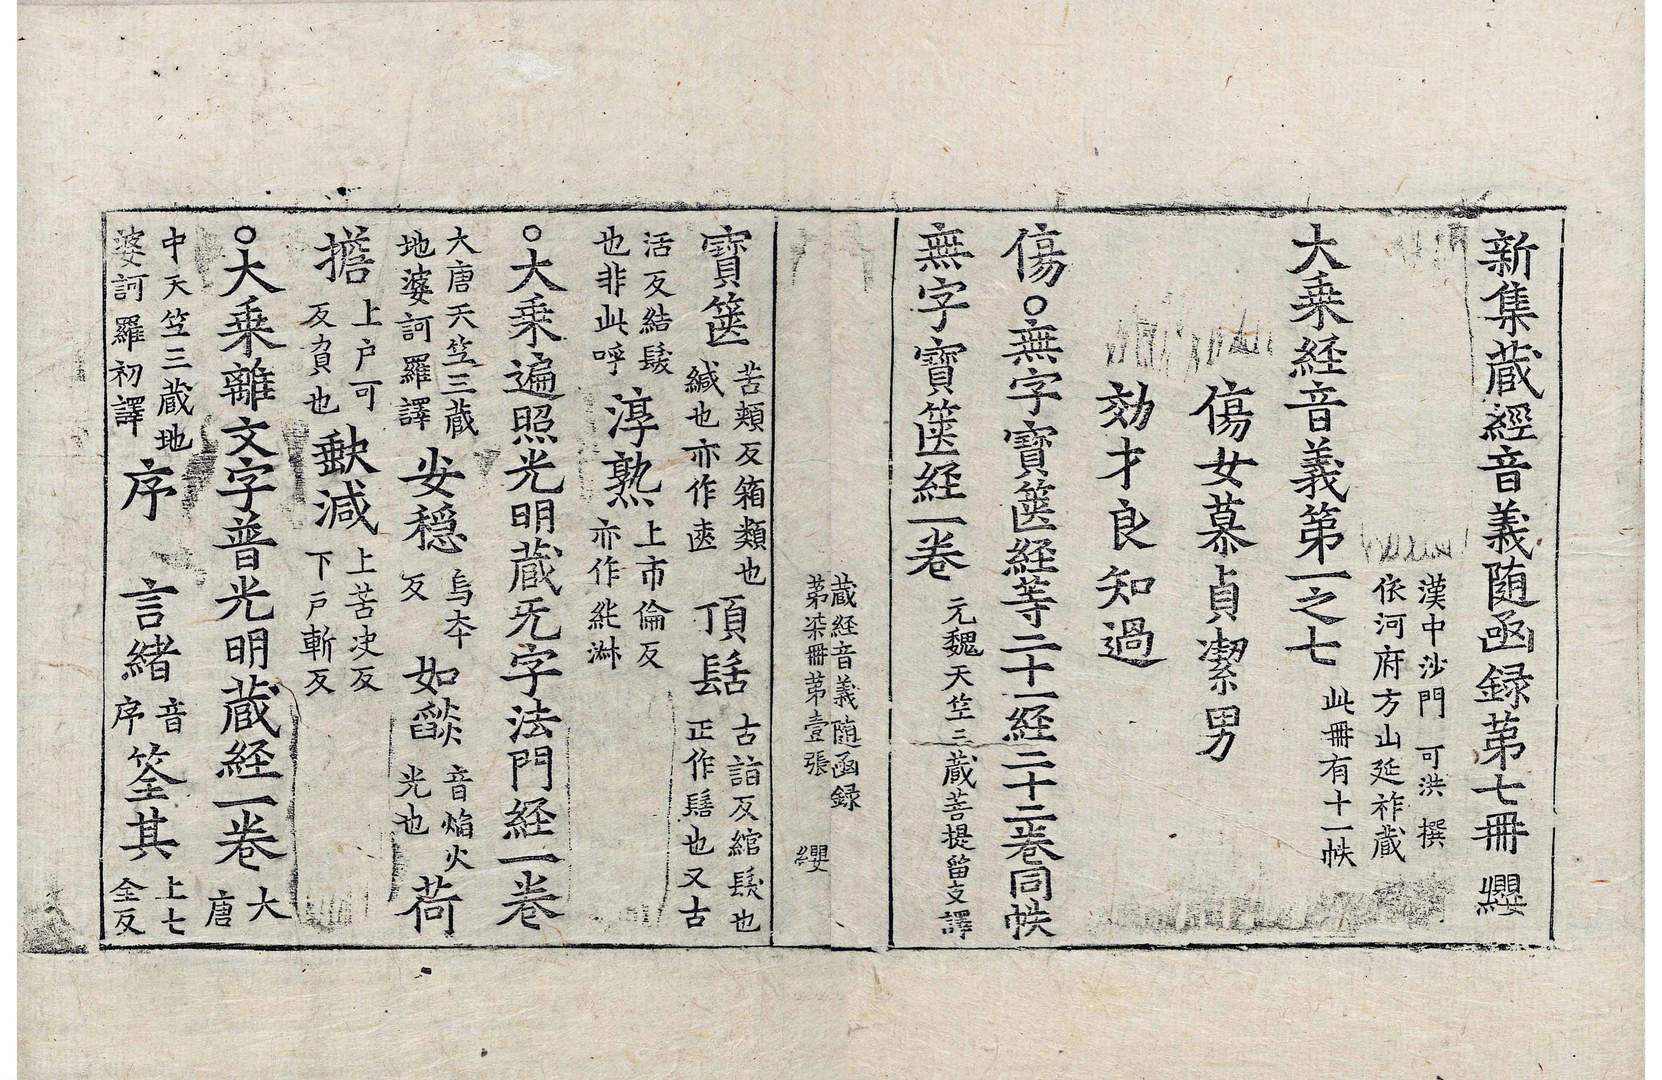 新集蔵經音義随函録第七冊 纓
漢中沙門 可洪 撰
依河府方山延祚蔵
大乗経音義第一之七 此冊有十一帙
傷女慕貞㓗男
効才良知過
傷○無字寶篋経等二十一経二十二卷同帙
無字寶篋経一卷 元魏天竺三蔵菩提留支譯
蔵経音義随函録
第柒冊第壹張 纓
寶篋 苦頬反箱類也
緘也亦作匧
頂髻 古詣反綰髮也
正作䯻也又古
活反結髮
也非此呼
淳熟 上市倫反
亦作純淋
○大乗遍照光明蔵无字法門経一卷
大唐天竺三蔵
地婆訶羅譯
安穏 烏夲
反
如燄 音焔火
光也
荷
擔 上户可
反負也
𡙇減 上苦决反
下戸斬反
○大乗離文字普光明蔵経一卷 大
唐
中天竺三蔵地
婆訶羅初譯
序 言緒 音
序
筌其 上七
全反